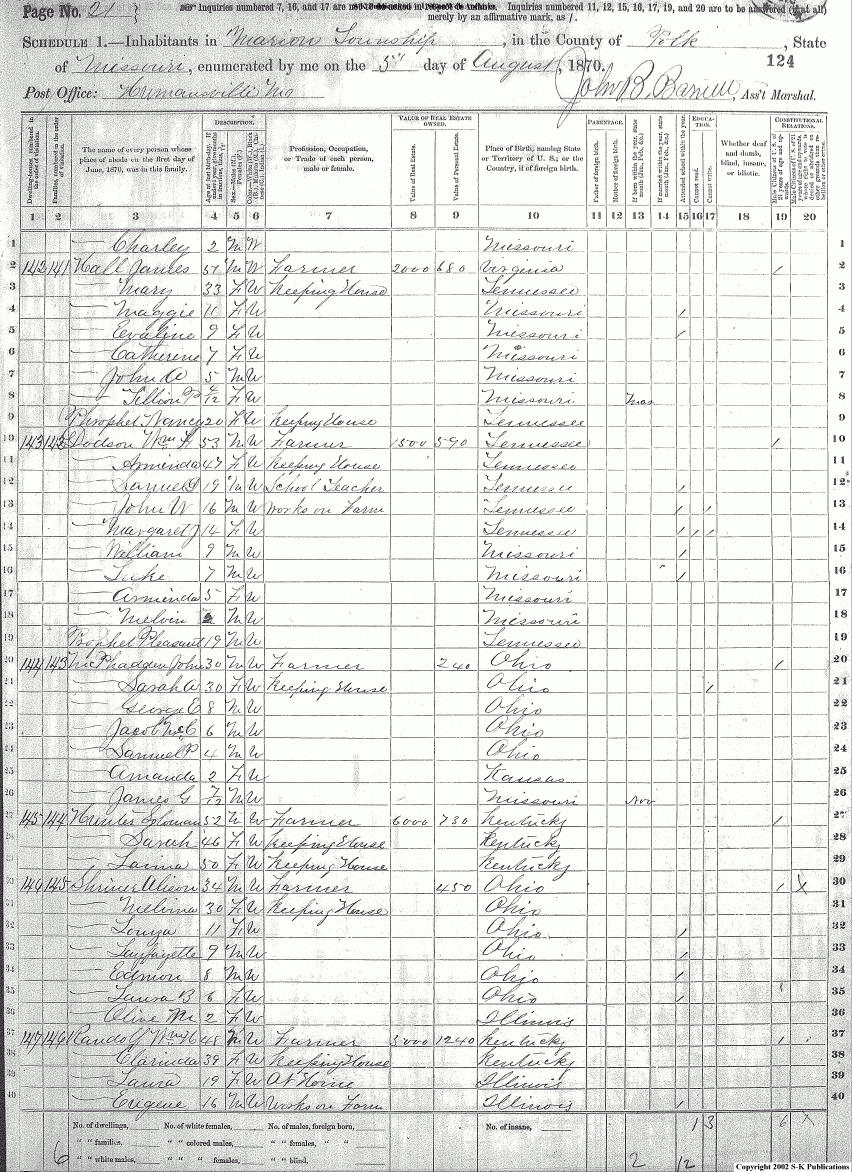 Page No. 21
Inquiries numbered 7, 16, and 17 are not to be asked in respect to infants. Inquiries numbered 11, 12, 15, 16, 17, 19, and 20 are to be answered (if at all)
merely by an affirmative mark, as /.
SCHEDULE 1.—Inhabitants in Marion Township, in the County of Polk, State
of Missouri, enumerated by me on the 5th day of August, 1870. 124
Post Office: Humansville Mo John B. Barrett, Ass't Marshal.
DESCRIPTION. VALUE OF REAL ESTATE OWNED. PARENTAGE. EDUCATION. CONSTITUTIONAL RELATIONS.
Dwelling-houses, numbered in the order of visitation.
Families, numbered in the order of visitation.
The name of every person whose place of abode on the first day of June, 1870, was in this family.
Profession, Occupation, or Trade of each person, male or female.
Value of Real Estate.
Value of Personal Estate.
Place of Birth, naming State or Territory of U. S.; or the Country, if of foreign birth.
Father of foreign birth.
Mother of foreign birth.
Attended school within the year.
Cannot read.
Cannot write.
Whether deaf and dumb, blind, insane, or idiotic.
1 2 3 4 5 6 7 8 9 10 11 12 13 14 15 16 17 18 19 20
1 — Charley 2 M W Missouri 1
2 142 141 Hall James 57 M W Farmer 2000 680 Virginia / 2
3 — Mary 33 F W Keeping House Tennessee 3
4 — Maggie 11 F W Missouri / 4
5 — Evaline 9 F W Missouri / 5
6 — Catherene 7 F W Missouri 6
7 — John A 5 M W Missouri 7
8 — Lillion P 4/12 F W Missouri Mar 8
9 Phrophet Nancy 20 F W Keeping House Tennessee 9
10 143 142 Dodson Wm H 53 M W Farmer 1500 590 Tennessee / 10
11 — Aminda 47 F W Keeping House Tennessee 11
12 — Samuel D 19 M W School Teacher Tennessee / 12
13 — John W 16 M W Works on Farm Tennessee / / 13
14 — Margaret J 14 F W Tennessee / / / 14
15 — William 9 M W Missouri / 15
16 — Luke 7 M W Missouri / 16
17 — Arminda 5 F W Missouri 17
18 — Melvin 2 M W Missouri 18
19 Prophet Pleasant 19 M W Tennessee 19
20 144 143 McPhadden John 30 M W Farmer 240 Ohio / 20
21 — Sarah A 30 F W Keeping House Ohio / 21
22 — George E 8 M W Ohio 22
23 — Jacob McC 6 M W Ohio 23
24 — Samuel P 4 M W Ohio 24
25 — Amanda 2 F W Kansas 25
26 — James G 7/12 M W Missouri Nov 26
27 145 144 Hunter Soloman 52 M W Farmer 6000 730 Kentucky / 27
28 — Sarah 46 F W Keeping House Kentucky 28
29 — Lacina 50 F W Keeping House Kentucky 29
30 146 145 Shriner Alison 34 M W Farmer 450 Ohio / X 30
31 — Melvina 30 F W Keeping House Ohio 31
32 — Louya 11 F W Ohio / 32
33 — Laffayette 9 M W Ohio / 33
34 — Edmon 8 M W Ohio / 34
35 — Laura B 6 F W Ohio / 35
36 — Olive M 2 F W Illinois 36
37 147 146 Randolf Wm H 48 M W Farmer 3000 1240 Kentucky / 37
38 — Clarinda 39 F W Keeping House Kentucky 38
39 — Laura 19 F W At Home Illinois 39
40 — Eugene 16 M W Works on Farm Illinois / 40
No. of dwellings, No. of white females, No. of males, foreign born, No. of insane, 1 3 6 X
" " families, " " colored males, " " females, " "
6 " " white males, " " " females, " " blind, 2 12
Copyright 2002 S-K Publications